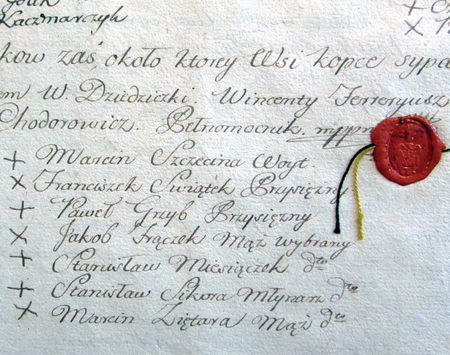 Kaczmarczyk
kow zaś około ktorey Wsi kopce sypa
em W. Dziedziczki. Wincenty Ferreryusz
Chodorowicz. Pełnomocnik. mppr
+ Marcin Szczecina Woyt.
× Franciszek Swiątek Przysięzny
+ Paweł Grzyb Przysięzny
× Jakob Frączek Mąż wybrany
+ Stanisław Miesiączek dto
+ Stanisław Sikora Młynarz dto
× Marcin Ziętara Mąż dto